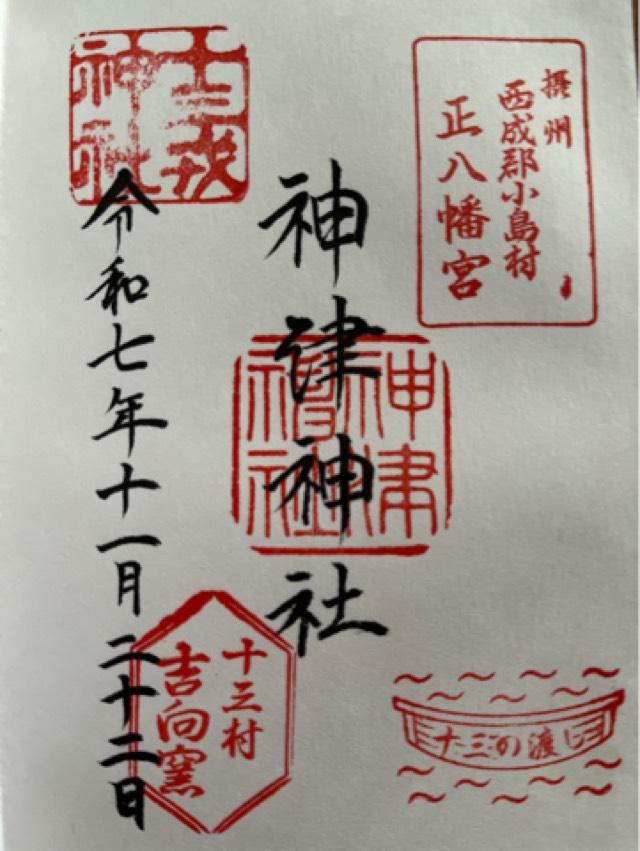 摂州
西成郡小島村
正八幡宮
神津神社
神津神社
十三村
吉向窯
十三の渡し
十三戎神社
令和七年十一月二十二日